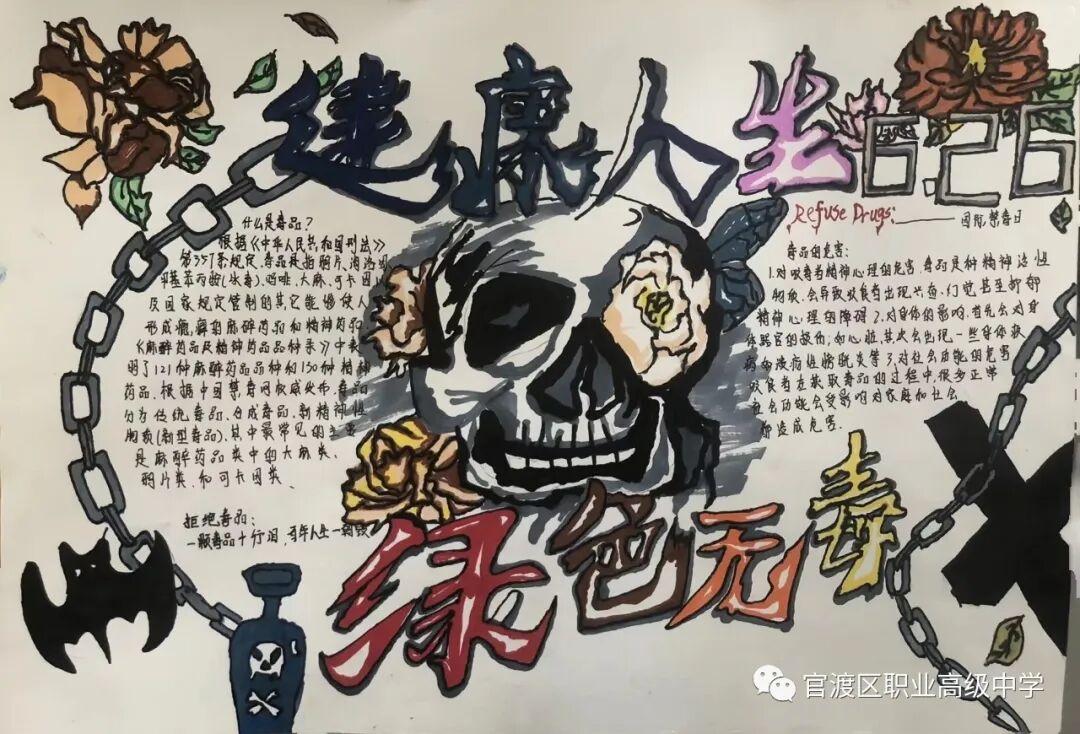 建康人生
6.26
Refuse Drugs:
国际禁毒日
什么是毒品？
根据《中华人民共和国刑法》
第357条规定,毒品是指鸦片、海洛因
甲基苯丙胺(冰毒)、吗啡、大麻、可卡因
及国家规定管制的其它能够使人
形成瘾癖的麻醉药品和精神药品
《麻醉药品及精神药品品种目录》中列
明了121种麻醉药品品种和150种精神
药品。根据中国禁毒网权威发布,毒品
分为传统毒品、合成毒品、新精神性
物质(新型毒品),其中最常见的主要
是麻醉药品类中的大麻类、
鸦片类、和可卡因类、
拒绝毒品:
一颗毒品十行泪,百年人生一朝毁
毒品的危害:
1.对吸毒者精神心理的危害,毒品是种精神活性
物质,会导致吸食者出现兴奋、幻觉甚至抑郁
精神心理的障碍2.对身体的影响,首先会对身
体器官的损伤,如心脏,其次会出现一些身体疾
病如溃疡性膀胱炎等3.对社会功能的危害
吸食者在获取毒品的过程中,很多正常
社会功能会受影响对家庭和社会
都造成危害.
绿色无毒
官渡区职业高级中学